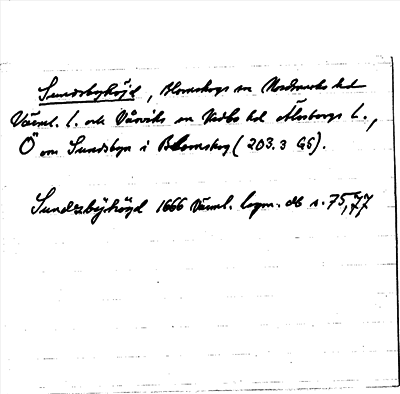 Sundsbyhöjd, Blomskogs sn Nordmarks hd
Värml. l. och Vårviks sn Vedbo hd Älvsborgs l.,
Ö om Sundsbyn i Blomskog (203.3 GS).
Sundzbyhögd 1666 Värml. lagm. db s. 75, 77